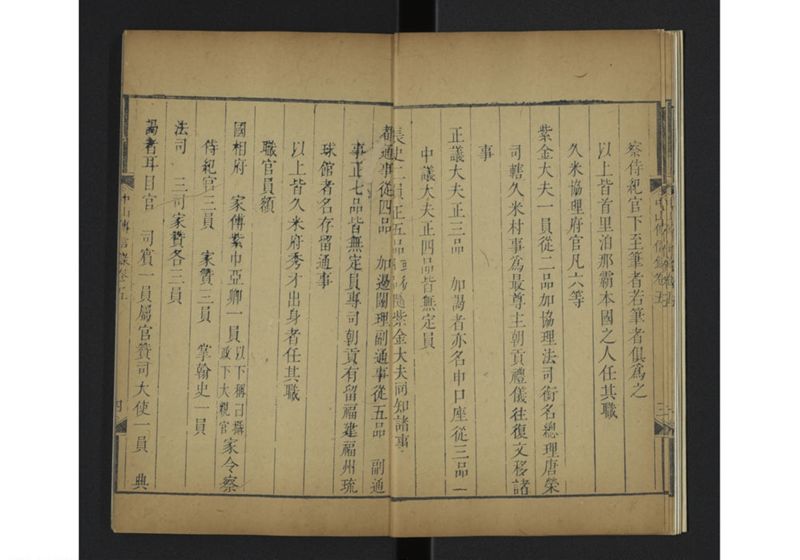 察侍紀官下至筆者若筆者俱為之
以上皆首里泊那霸本國之人任其職
久米協理府官凡六等
紫金大夫一員從二品加協理法司銜名總理唐榮
司轄久米村事為最尊主朝貢禮儀往復文移諸
事
正議大夫正三品 加謁者亦名申口座從三品一
中議大夫正四品皆無定員
長史二員正五品 紫金大夫同知諸事
都通事從四品 加遏闥理副通事從五品 副通
事正七品皆無定員專司朝貢有留福建福州琉
球館者名存留通事
以上皆久米府秀才出身者任其職
職官員額
國相府 家傅紫巾亞卿一員 家令察
侍紀官三員 家贊三員 掌翰史一員
法司 三司家贊各三員
謁者耳目官 司賓一員屬官贊司大使一員 典
中山傳信錄卷五
四